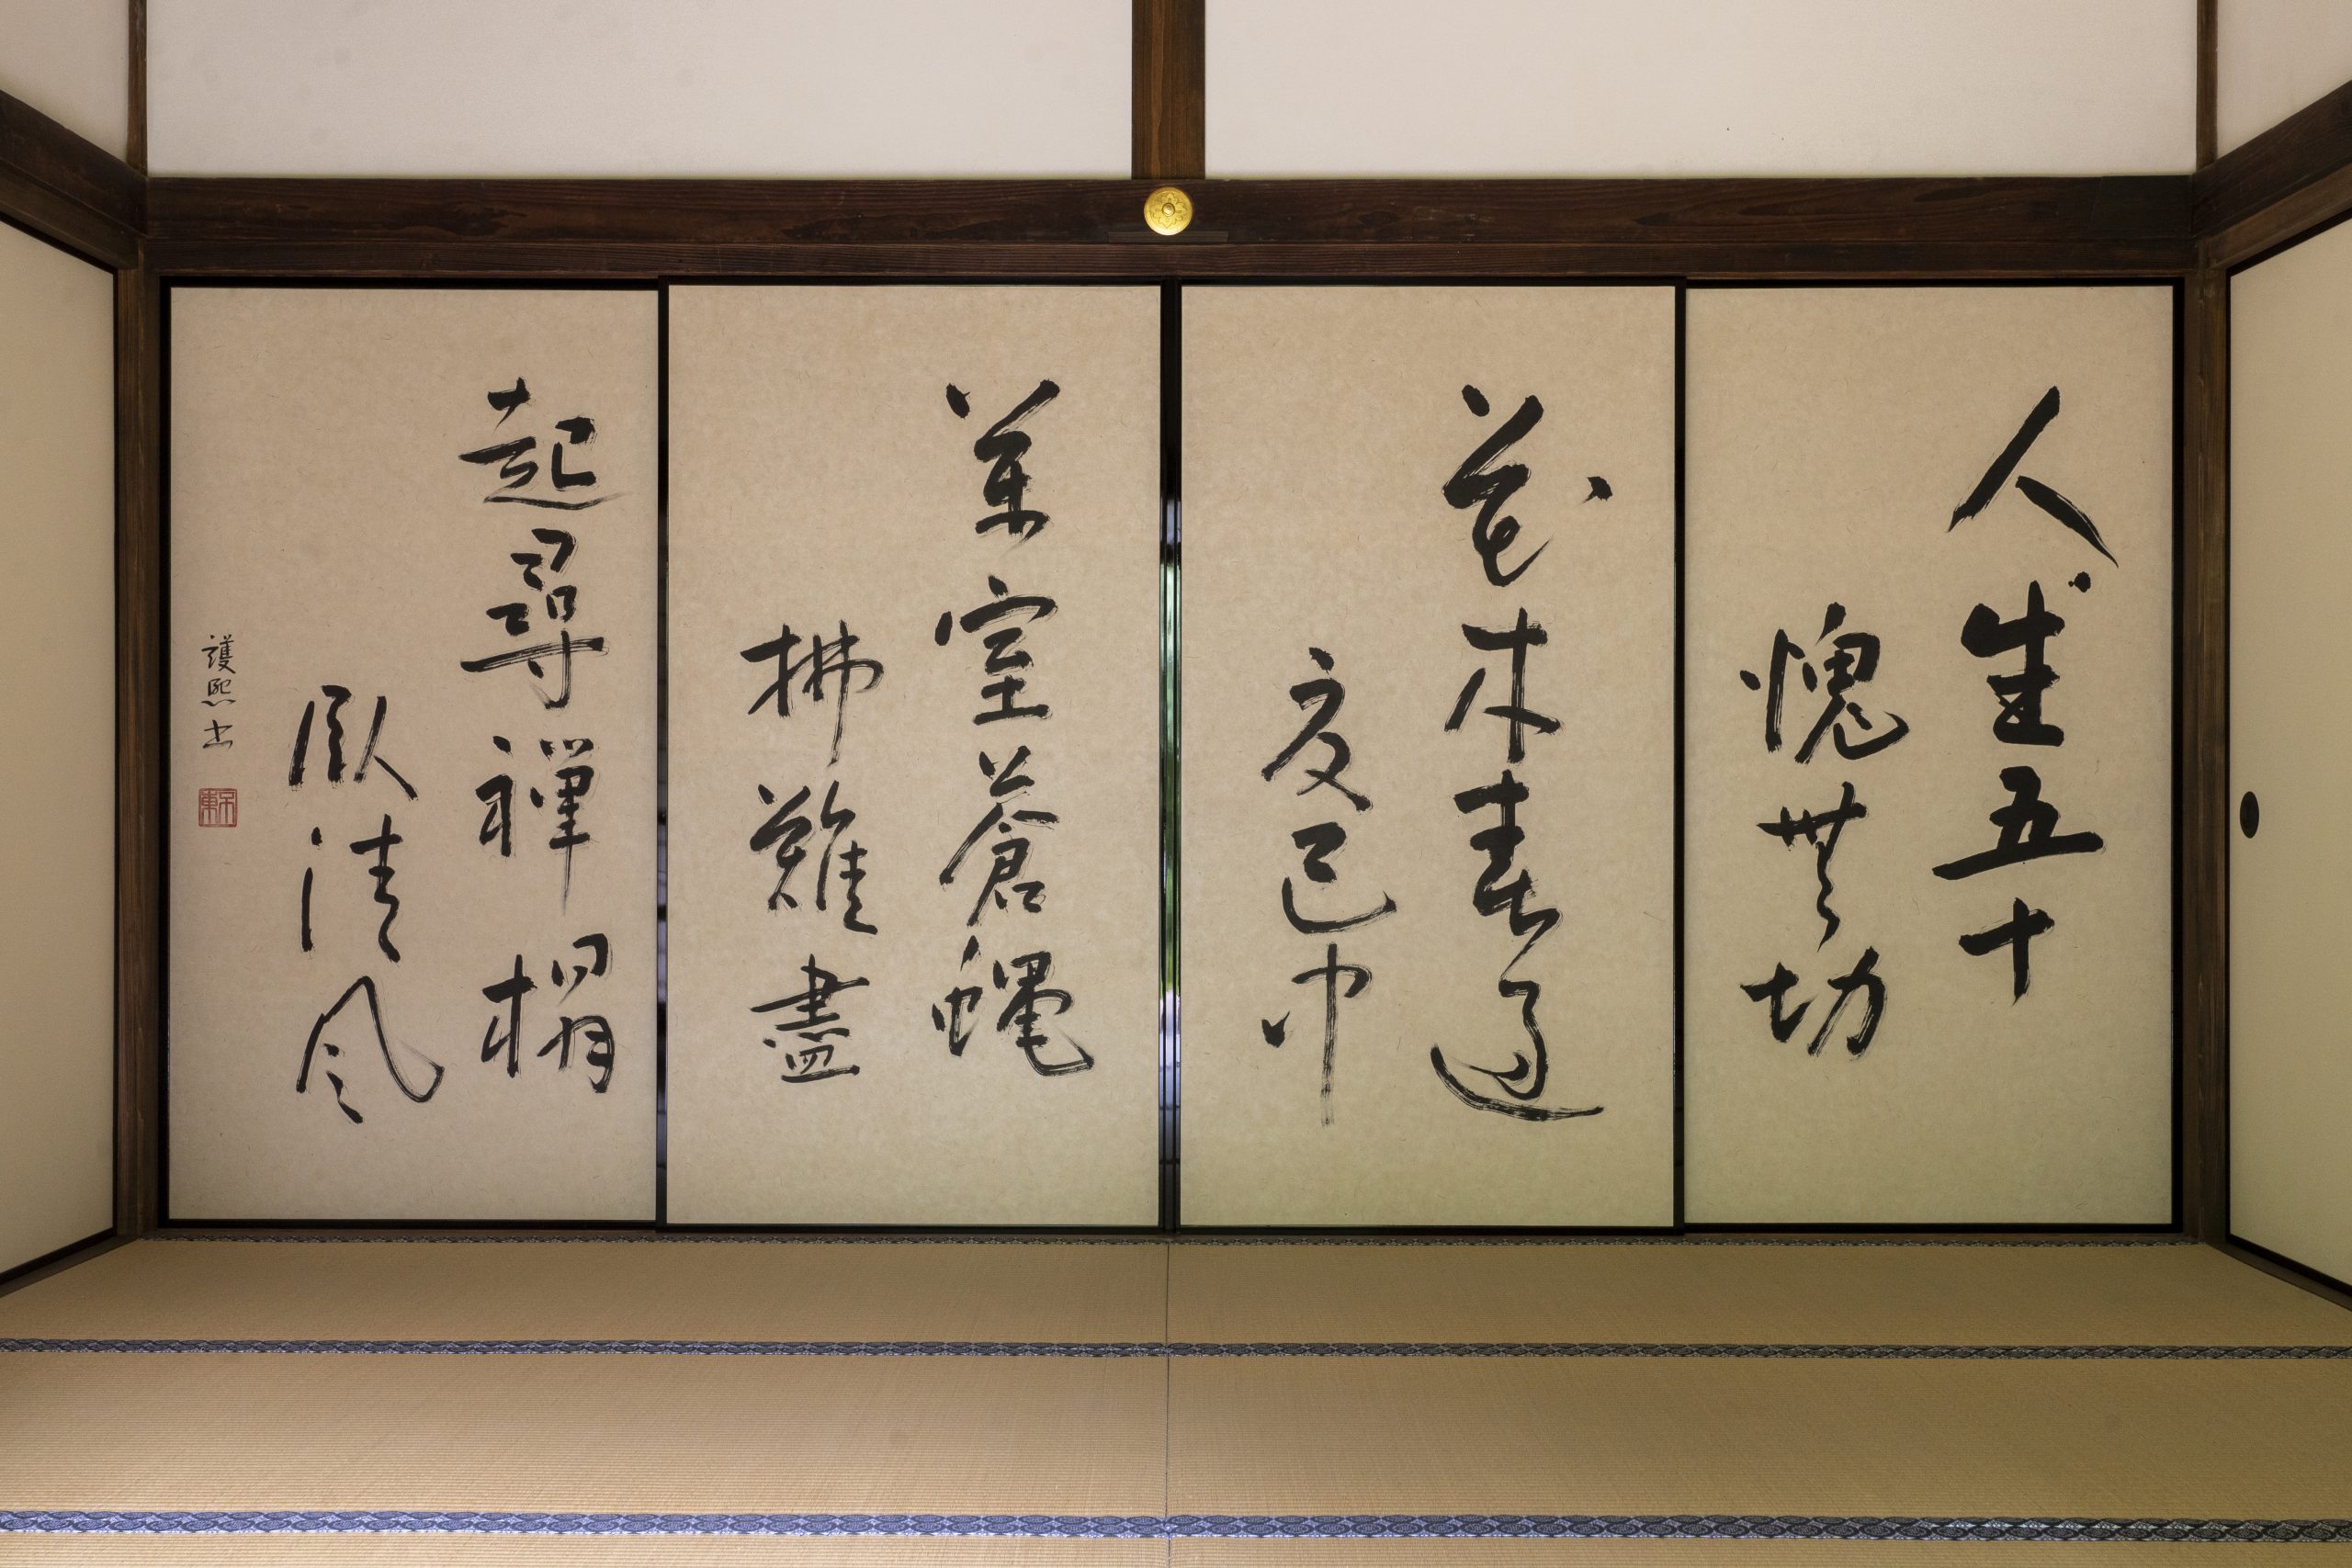 人生五十
愧無功
花木春過
夏已中
満室蒼蝿
掃難尽
起尋禅榻
臥清風
護熙書